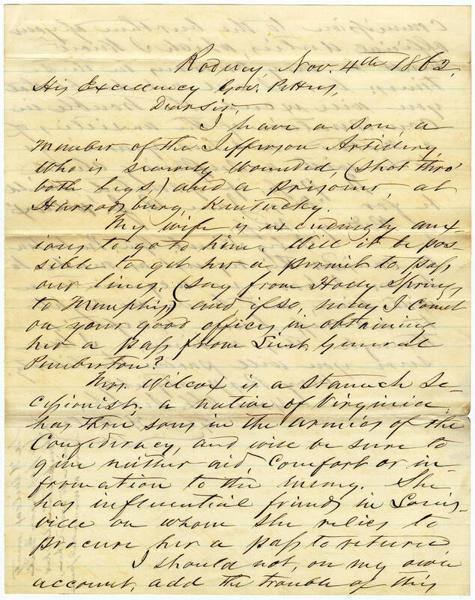 Rodney Nov. 4th 1862.
His Excellency Gov. Pettus,
Dear Sir,
I have a son, a
member of the Jefferson Artillery
who is severely wounded, (shot thro'
both legs,) and a prisoner, at
Harrodsburg, Kentucky.
My wife is exceedingly anx
ious to go to him. Will it be pos
sible to get her a permit to pass
our lines, (say from Holly Springs
to Memphis) and if so, may I count
on your good offices in obtaining
her a pass from Lieut. General
Pemberton?
Mrs. Wilcox is a staunch Se
cessionist, a native of Virginia,
has three sons in the armies of the
Confederacy, and will be sure to
give neither aid, comfort or in
formation to the enemy. She
has influential friends in Louis
ville on whom she relies to
procure her a pass to return
I should not, on my own
account, add the trouble of this